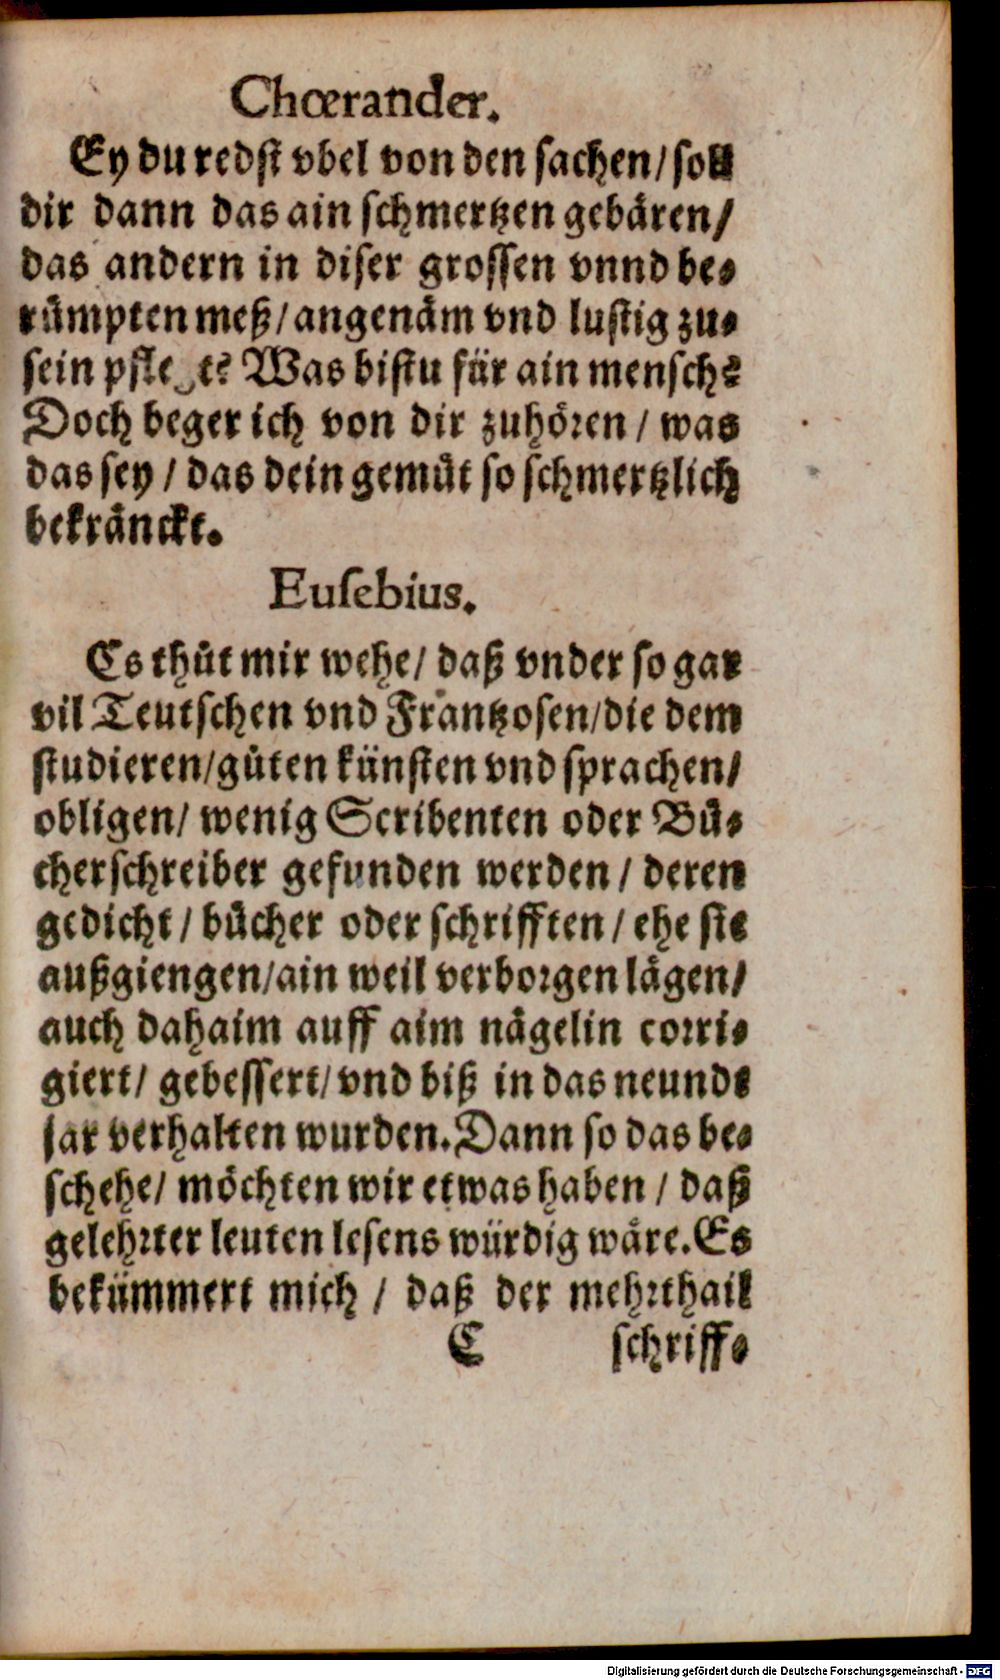 Chœrander.
Ey du redst vbel von den sachen/ soll
dir dann das ain schmertzen gebären/
das andern in diser grossen vnnd be-
rümpten meß/ angenäm vnd lustig zu-
sein pflegt? Was bistu für ain mensch?
Doch beger ich von dir zuhören/ was
das sey/ das dein gemüt so schmertzlich
bekränckt.
Euſebius.
Es thůt mir wehe/ daß vnder so gar
vil Teutschen vnd Frantzosen/ die dem
studieren/ gůten künsten vnd sprachen/
obligen/ wenig Scribenten oder Bů-
cherschreiber gefunden werden/ deren
gedicht/ bůcher oder schrifften/ ehe sie
außgiengen/ ain weil verborgen lägen/
auch dahaim auff aim nägelin corri-
giert/ gebessert/ vnd biß in das neundt
jar verhalten wurden. Dann so das be-
schehe/ möchten wir etwas haben/ daß
gelehrter leuten lesens würdig wäre. Es
bekümmert mich/ daß der mehrthail
C schriff-
Digitalisierung gefördert durch die Deutsche Forschungsgemeinschaft - DFG